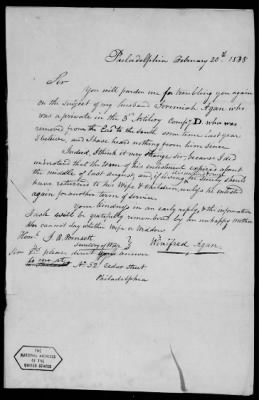 Philadelphia February 20th 1838
Sir
You will pardon me for troubling you again
on the subject of my husband Jeremiah Agan who
was a private in the 3d Artillery Compy D. who was
removed from the to the South some time last year
I believe, and I have heard nothing from him since.
Indeed, I think it very strange Sir, because I did
understand that the term of his enlistment expired about
the middle of last august, and if living he surely should
have returned to his Wife & Children, unless he enlisted
again for another term of service.
Your kindness in an early reply, & the information
I ask will be gratefully remembered by an unhappy mother
who cannot say whether Wife or Widow
Honl. J. R. Poinsett
Secretary of War
Winifred Agan.
Sir please direct your answer
to me at No 52 Cedar Street
Philadelphia
THE
NATIONAL ARCHIVES
OF THE
UNITED STATES